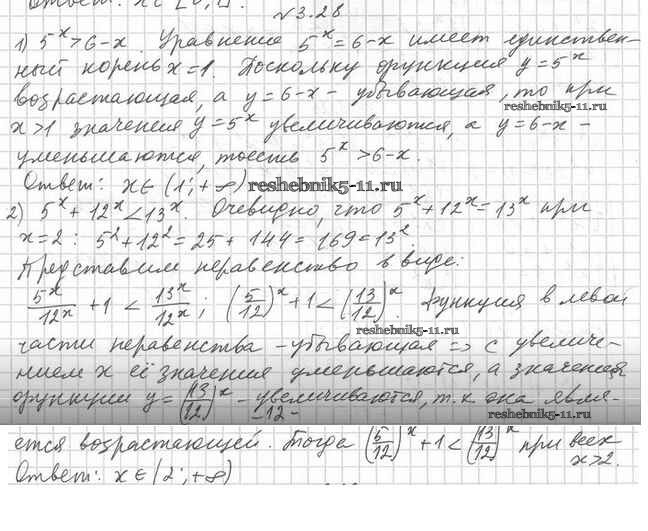 Ответ: x∈[0;
№3.28
1) 5^x > 6-x. Уравнение 5^x = 6-x имеет единствен-
ный корень x=1. Поскольку функция y=5^x
возрастающая, а y=6-x - убывающая, то при
reshebnik5-11.ru
x>1 значения y=5^x увеличиваются, а y=6-x -
уменьшаются, тоесть 5^x > 6-x.
Ответ: x∈(1;+∞)
reshebnik5-11.ru
2) 5^x+12^x<13^x. Очевидно, что 5^x+12^x=13^x при
x=2: 5^2+12^2=25+144=169=13^2.
Представим неравенство в виде:
5^x/12^x + 1 < 13^x/12^x; (5/12)^x + 1 < (13/12)^x. Функция в левой
reshebnik5-11.ru
части неравенства - убывающая => с увеличе-
нием x её значения уменьшаются, а значения
функции y=(13/12)^x - увеличиваются, т.к она явля-
-12-
reshebnik5-11.ru
ется возрастающей. Тогда (5/12)^x + 1 < (13/12)^x при всех
x>2.
Ответ: x∈(2;+∞)